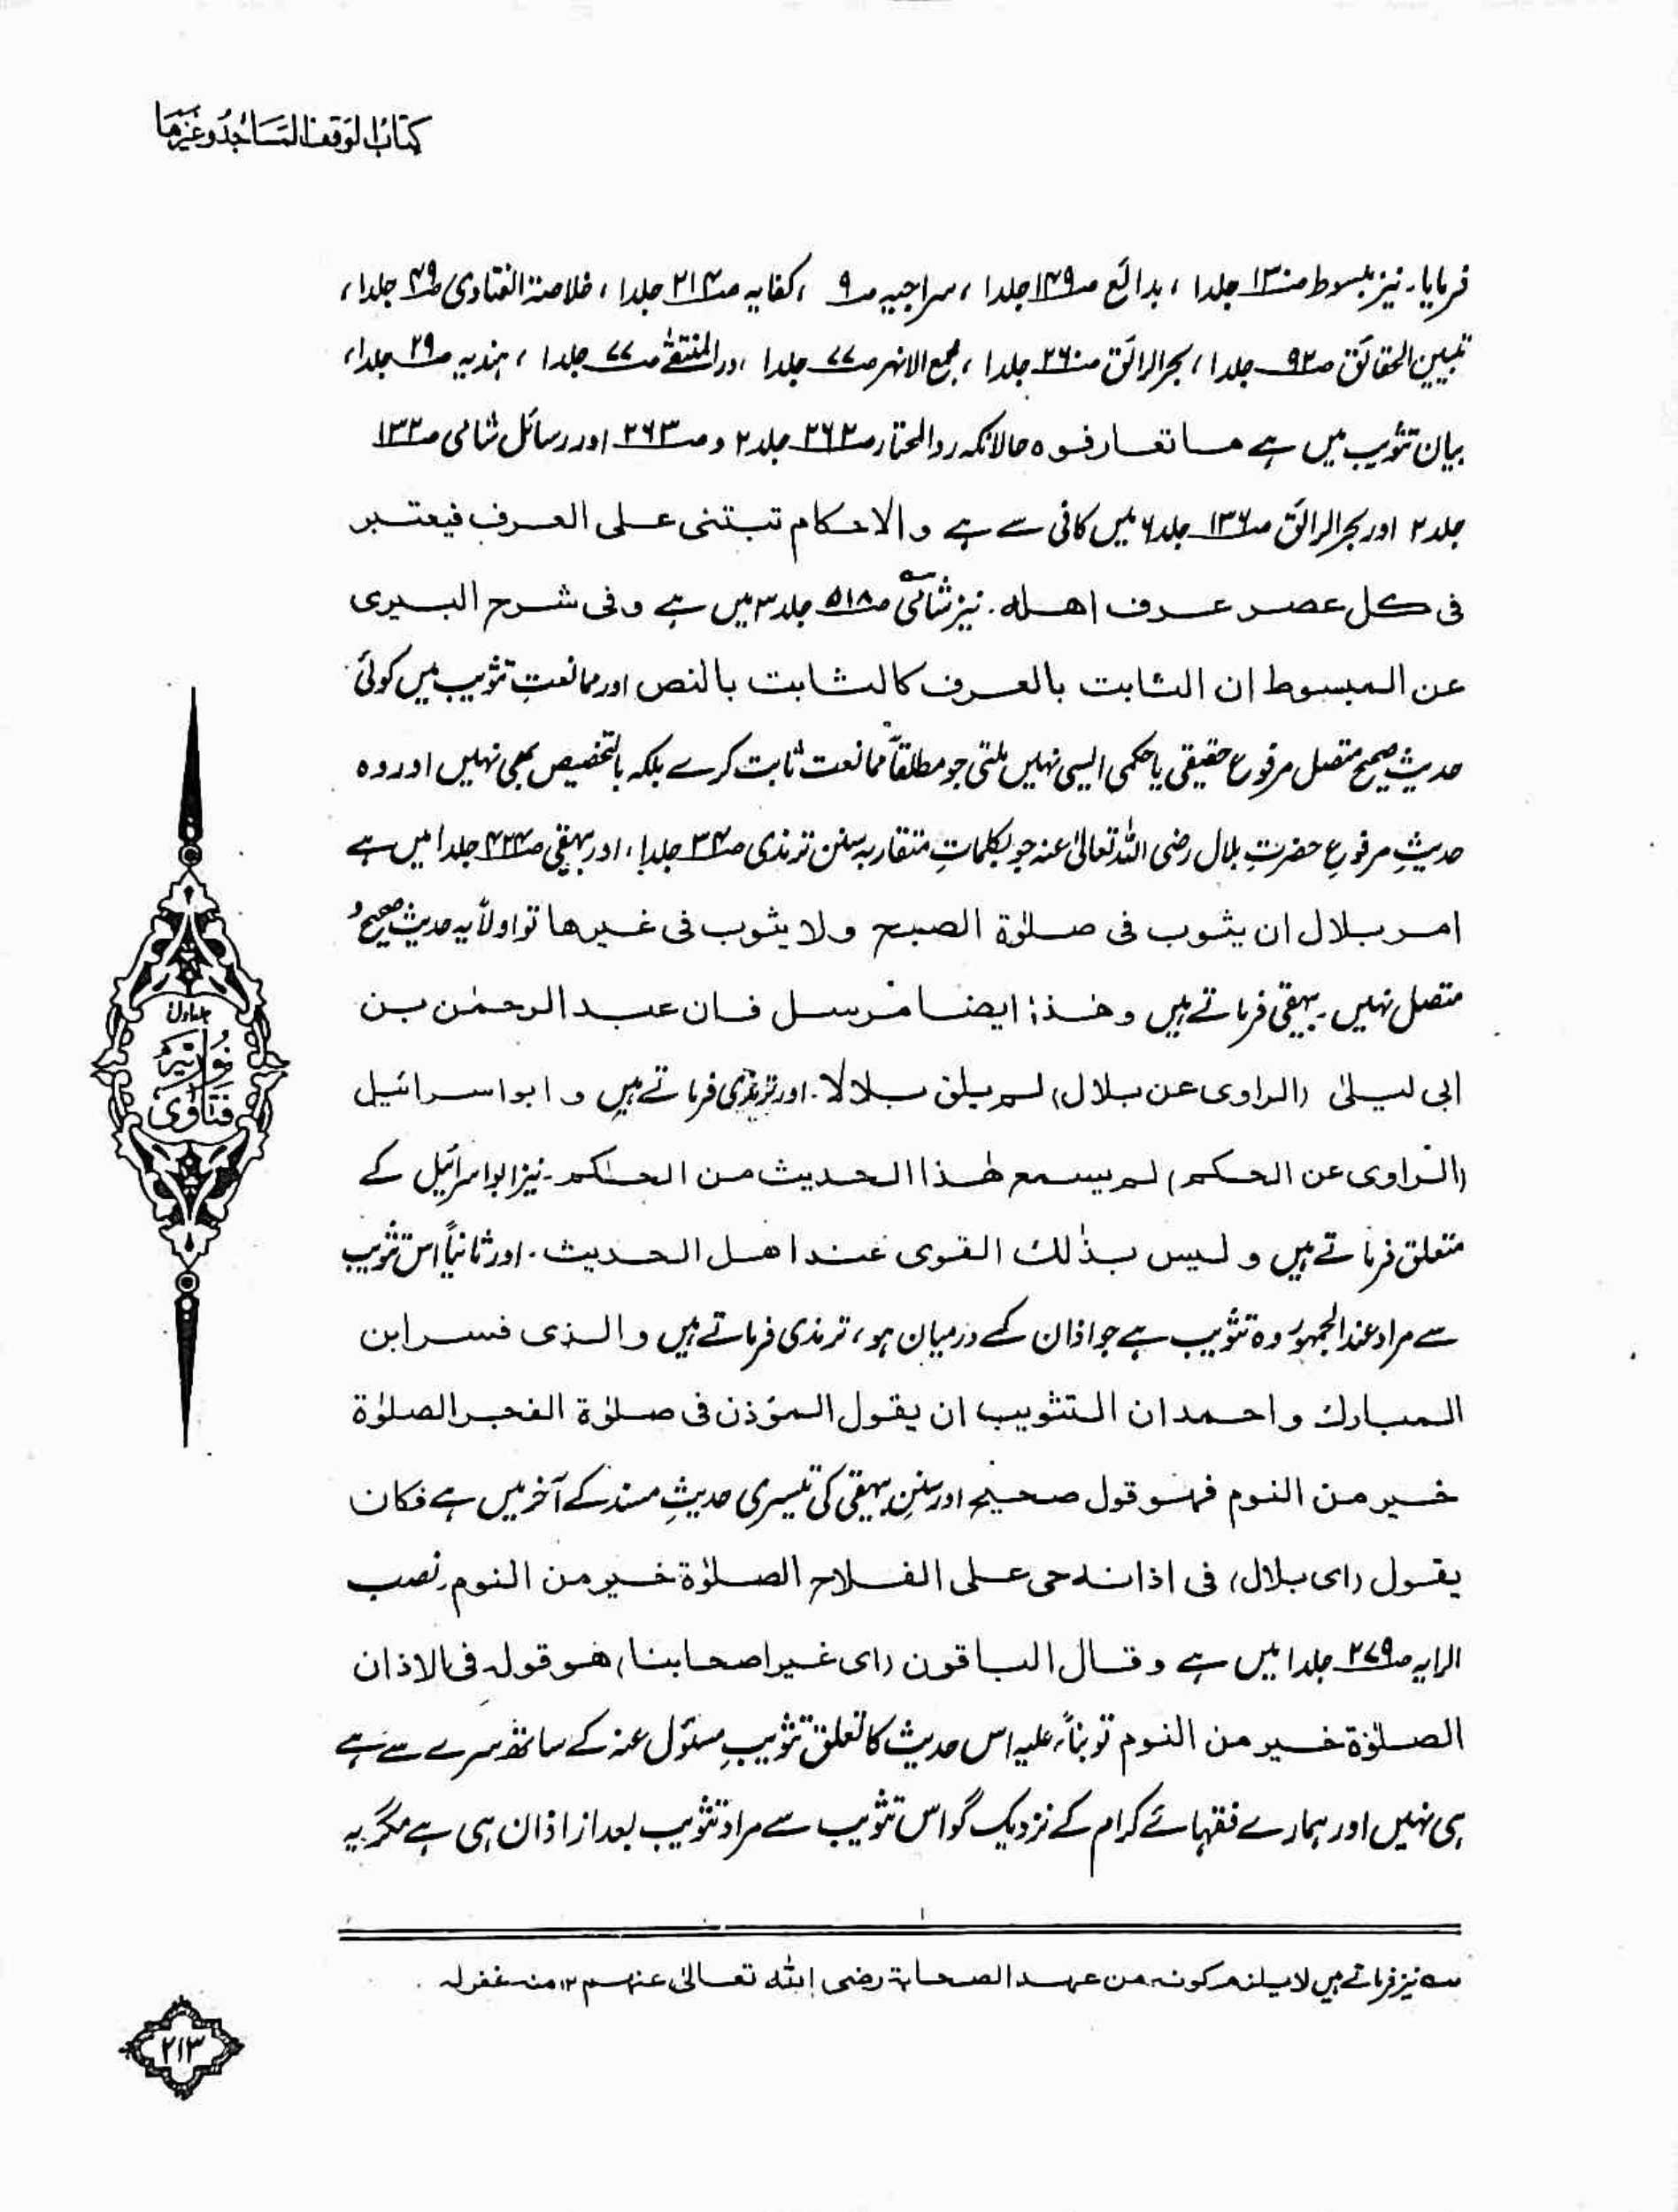 کتابُ الوَقفِ المَسَاجِدُ وغَیرُھَا
فرمایا۔ نیز مبسوط صـ۱۳۰ جلد۱ ، بدائع صـ۱۴۹ جلد۱ ، سراجیہ صـ۹ ، کفایہ صـ۲۱۴ جلد۱ ، خلاصۃ الفتاوی صـ۴۹ جلد۱ ،
تبیین الحقائق صـ۹۲ جلد۱ ، بحرالرائق صـ۲۶۰ جلد۱ ، مجمع الانہر صـ۷۷ جلد۱ ، درالمنتقےٰ صـ۷۷ جلد۱ ، ہندیہ صـ۲۹ جلد۱ ،
بیان تثویب میں ہے ما تعارفوہ حالانکہ ردالمحتار صـ۲۶۲ جلد۲ و صـ۲۶۳ اور رسائل شامی صـ۱۳۲
جلد۲ اور بحرالرائق صـ۱۳۶ جلد۶ میں کافی سے ہے والاحکام تبتنی علی العرف فیعتبر
فی کل عصر عرف اھلہ۔ نیز شامی؎ صـ۵۱۸ جلد۳ میں ہے وفی شرح البیری
عن المبسوط ان الثابت بالعرف کالثابت بالنص اور ممانعتِ تثویب میں کوئی
حدیث صحیح متصل مرفوع حقیقی یا حکمی ایسی نہیں ملتی جو مطلقاً ممانعت ثابت کرے بلکہ بالتخصیص بھی نہیں اور وہ
حدیثِ مرفوعِ حضرتِ بلال رضی اللہ تعالیٰ عنہ جو بکلماتِ متقاربہ سنن ترمذی صـ۳۴ جلد۱، اور بیہقی صـ۴۲۴ جلد۱ میں ہے
امر بلال ان یثوب فی صلوٰۃ الصبح ولا یثوب فی غیرھا تو اولاً یہ حدیث صحیح و
متصل نہیں۔ بیہقی فرماتے ہیں وھٰذا ایضا مرسل فان عبدالرحمٰن بن
ابی لیلیٰ (الراوی عن بلال) لم یلق بلالا۔ اور ترمذی فرماتے ہیں و ابو اسرائیل
(الراوی عن الحکم) لم یسمع ھٰذا الحدیث من الحکم۔ نیز ابو اسرائیل کے
متعلق فرماتے ہیں و لیس بذٰلک القوی عند اھل الحدیث۔ اور ثانیاً اس تثویب
سے مراد عند الجمہور وہ تثویب ہے جو اذان کے درمیان ہو، ترمذی فرماتے ہیں والذی فسر ابن
المبارک واحمد ان التثویب ان یقول المؤذن فی صلوٰۃ الفجر الصلوٰۃ
خیر من النوم فھو قول صحیح اور سننِ بیہقی کی تیسری حدیثِ مسند کے آخر میں ہے فکان
یقول (ای بلال) فی اذانہ حی علی الفلاح الصلوٰۃ خیر من النوم۔ نصب
الرایہ صـ۲۷۹ جلد۱ میں ہے وقال الباقون (ای غیر اصحابنا) ھو قولہ فی الاذان
الصلوٰۃ خیر من النوم تو بناءً علیہ اس حدیث کا تعلق تثویبِ مسئول عنہ کے ساتھ سرے سے ہے
ہی نہیں اور ہمارے فقہائے کرام کے نزدیک گو اس تثویب سے مراد تثویب بعد از اذان ہی ہے مگر یہ
؎ نیز فرماتے ہیں لایلزم کونہ من عہد الصحابۃ رضی اللہ تعالیٰ عنہم ۱۲ منہ غفرلہ
جلد اول
نُورِیَّہ
فَتَاوٰی
۲۱۳